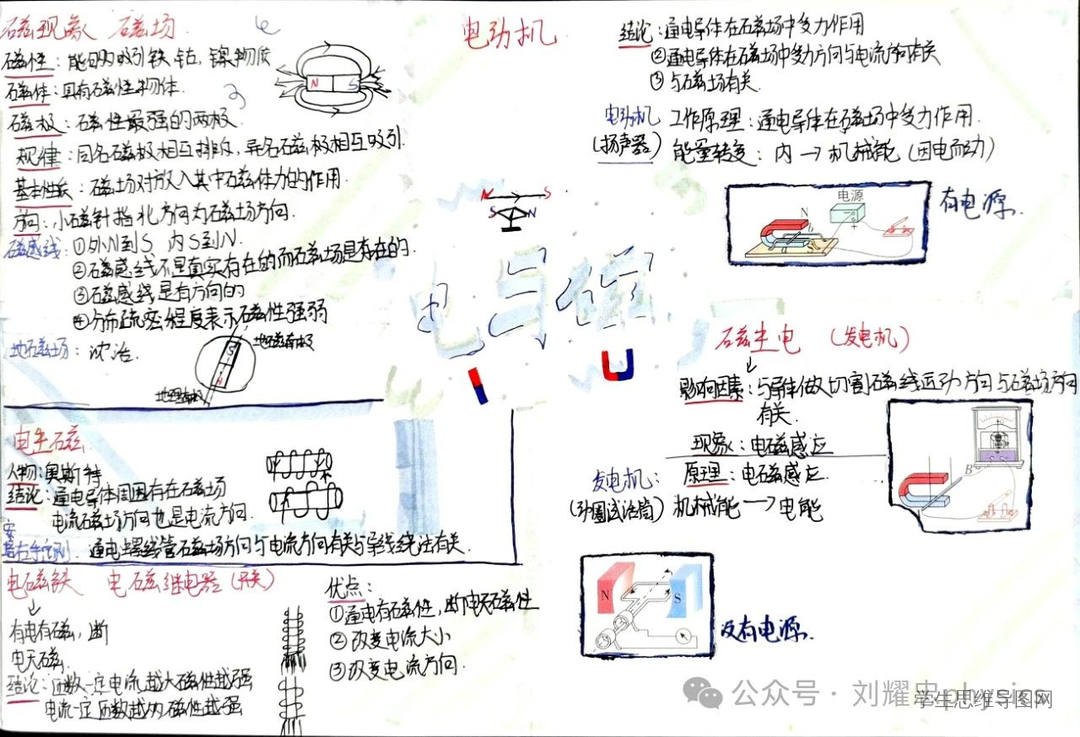 磁现象 磁场.
磁性：能吸引铁、钴、镍物质
磁体：具有磁性物体.
磁极：磁性最强的两极.
规律：同名磁极相互排斥，异名磁极相互吸引.
基本性质：磁场对放入其中磁体力的作用.
方向：小磁针指北方向为磁场方向.
磁感线：①外N到S 内S到N.
②磁感线不是真实存在的而磁场是存在的.
③磁感线是有方向的
④分布疏密程度表示磁性强弱
地磁场：沈括.
地磁南极
S
N
N S
N S
S N
电与磁
电生磁
人物：奥斯特
结论：通电导体周围存在磁场
电流磁场方向也是电流方向.
安培右手定则. 通电螺线管磁场方向与电流方向有关与导线绕法有关.
电磁铁 电磁继电器（开关）
有电有磁，断
电无磁.
结论：匝数一定电流越大磁性越强
电流一定匝数越多磁性越强
优点：
①通电有磁性，断电无磁性
②改变电流大小
③改变电流方向.
电动机
结论：通电导体在磁场中受力作用
②通电导体在磁场中受力方向与电流方向有关
③与磁场有关.
电动机 工作原理：通电导体在磁场中受力作用.
（扬声器） 能量转变：内→机械能（因电而动）
电源
N
+
有电源.
磁生电 （发电机）
影响因素：与导体做切割磁线运动方向与磁场方向
有关.
现象：电磁感应
发电机： 原理：电磁感应.
机械能→电能
B
N S
没有电源.
公众号·刘耀忠physics
学生思维导图网